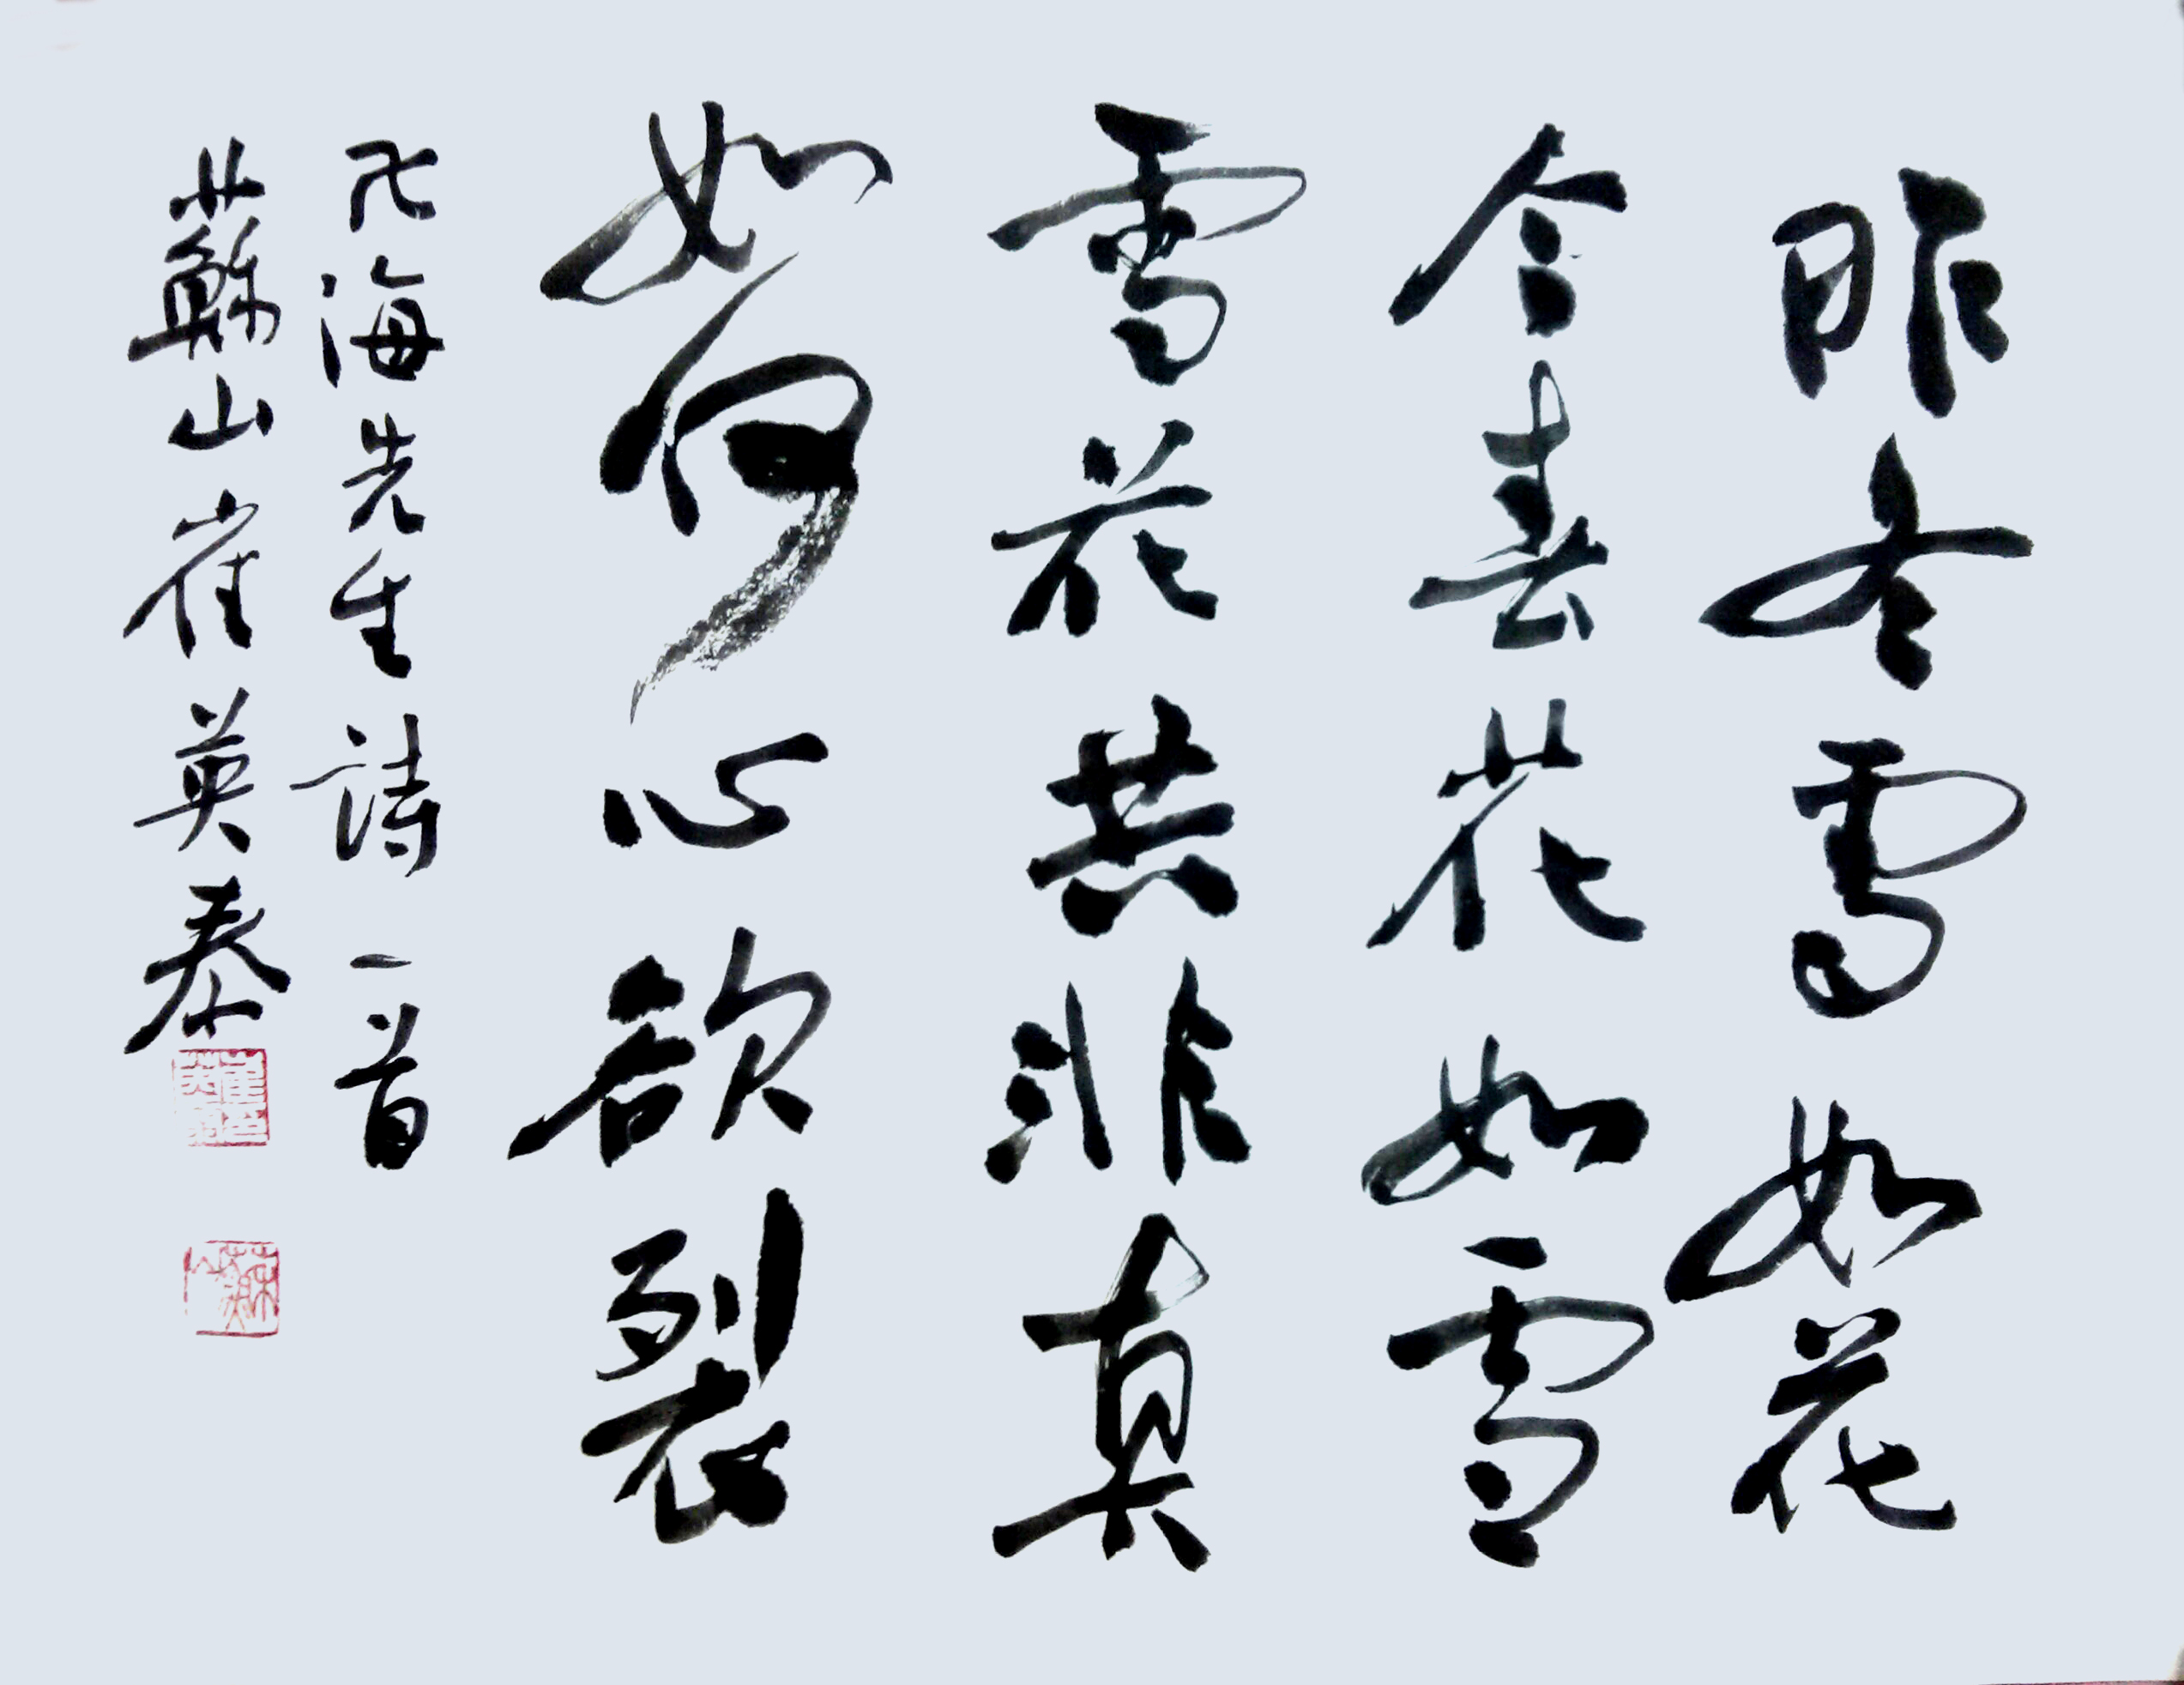 昨冬雪如花
今春花如雪
雪花共非真
如何心欲裂
卍海先生詩一首
蘇山崔英泰